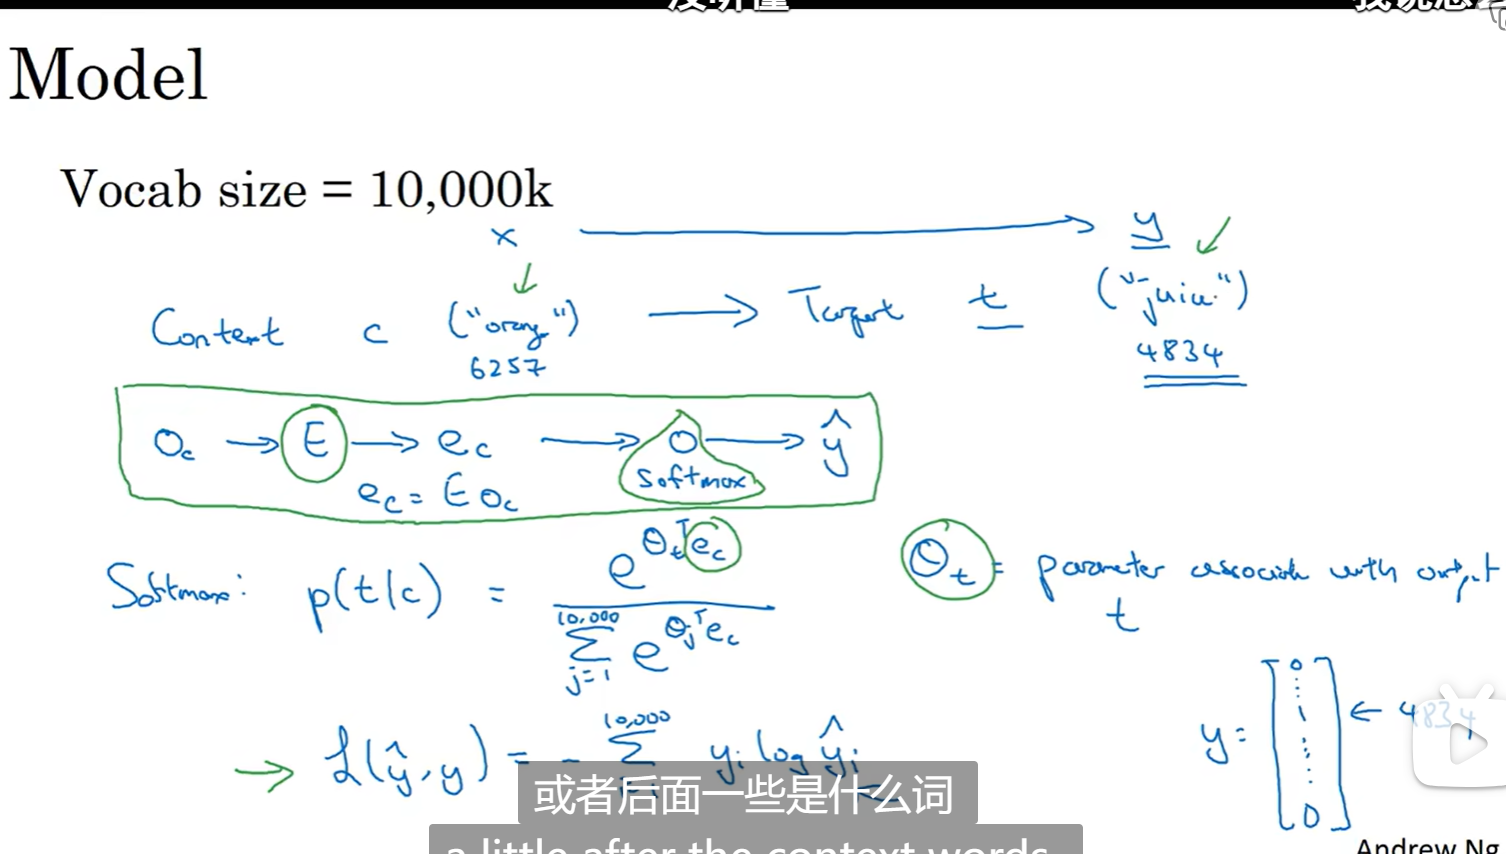 没听懂
我说怎么
Model
Vocab size = 10,000k
x → y
Context c ("orange") → Target t ("juice")
6257 4834
O_c → E → e_c → O → ŷ
softmax
e_c = E O_c
Softmax: p(t|c) = e^{θ_t^T e_c} / Σ_{j=1}^{10,000} e^{θ_j^T e_c}
θ_t = parameter associate with output
t
ℒ(ŷ, y) = - Σ^{10,000} y_i log ŷ_i
y = [0 ⋮ 1 ⋮ 0] ← 4834
或者后面一些是什么词
a little after the context words
Andrew Ng